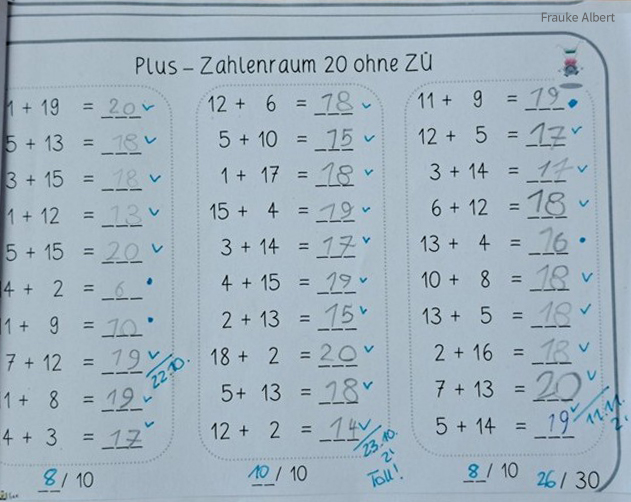 Frauke Albert
Plus – Zahlenraum 20 ohne ZÜ
1 + 19 = 20 ✓
5 + 13 = 18 ✓
3 + 15 = 18 ✓
1 + 12 = 13 ✓
5 + 15 = 20 ✓
4 + 2 = 6 •
1 + 9 = 10 •
7 + 12 = 19 ✓ 22.10.
1 + 8 = 19 ✓
4 + 3 = 17 ✓
8 / 10
12 + 6 = 18 ✓
5 + 10 = 15 ✓
1 + 17 = 18 ✓
15 + 4 = 19 ✓
3 + 14 = 17 ✓
4 + 15 = 19 ✓
2 + 13 = 15 ✓
18 + 2 = 20 ✓
5 + 13 = 18 ✓
12 + 2 = 14 ✓ 23.10.
Toll!
10 / 10
11 + 9 = 19 •
12 + 5 = 17 ✓
3 + 14 = 17 ✓
6 + 12 = 18 ✓
13 + 4 = 16 •
10 + 8 = 18 ✓
13 + 5 = 18 ✓
2 + 16 = 18 ✓
7 + 13 = 20 ✓
5 + 14 = 19 ✓ 11.11.
8 / 10
26 / 30